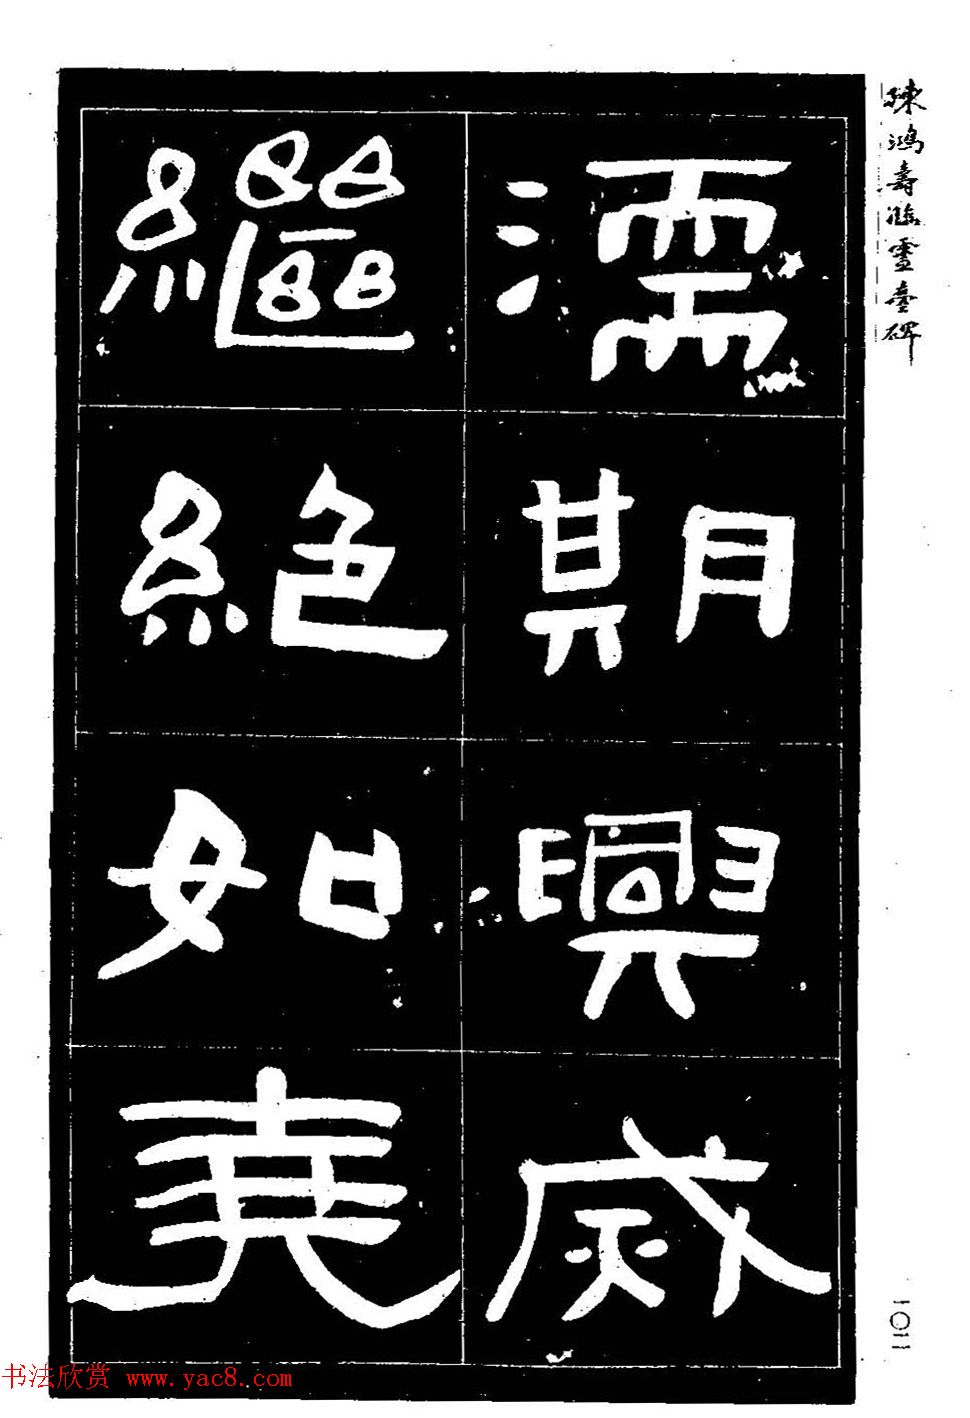 陳鴻壽臨靈臺碑
濡期興烕
繼絕如堯
一〇二
书法欣赏 www.yac8.com